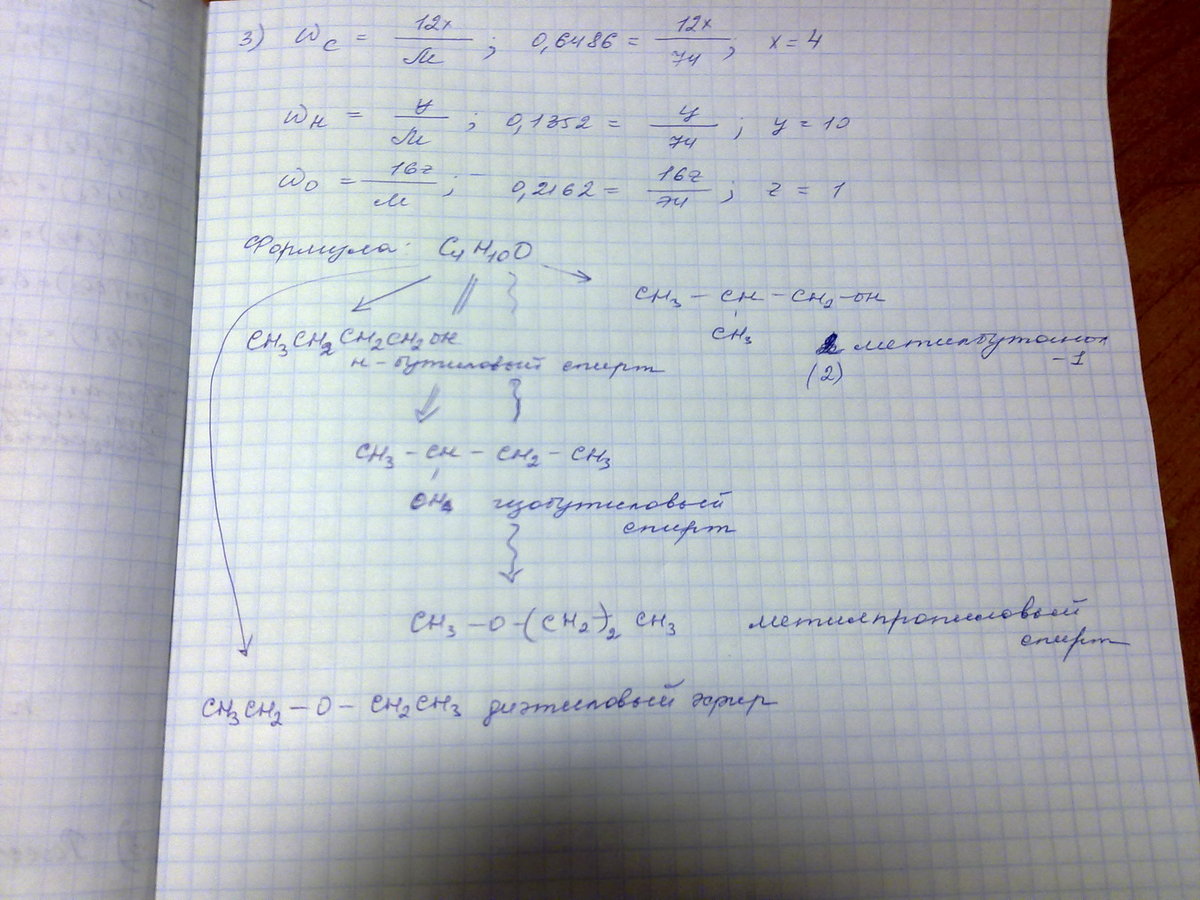 3) Wc = 12x/M ; 0,6486 = 12x/74 ; x = 4
WH = y/M ; 0,1352 = y/74 ; y = 10
WO = 16z/M ; 0,2162 = 16z/74 ; z = 1
Формула: C4H10O
CH3 – CH – CH2 – OH
CH3
2 метилбутанол
– 1
(2)
CH3CH2CH2CH2OH
н - бутиловый спирт
CH3 – CH – CH2 – CH3
OH изобутиловый
спирт
CH3 – O – (CH2)2 CH3 метилпропиловый
спирт
CH3CH2 – O – CH2CH3 диэтиловый эфир